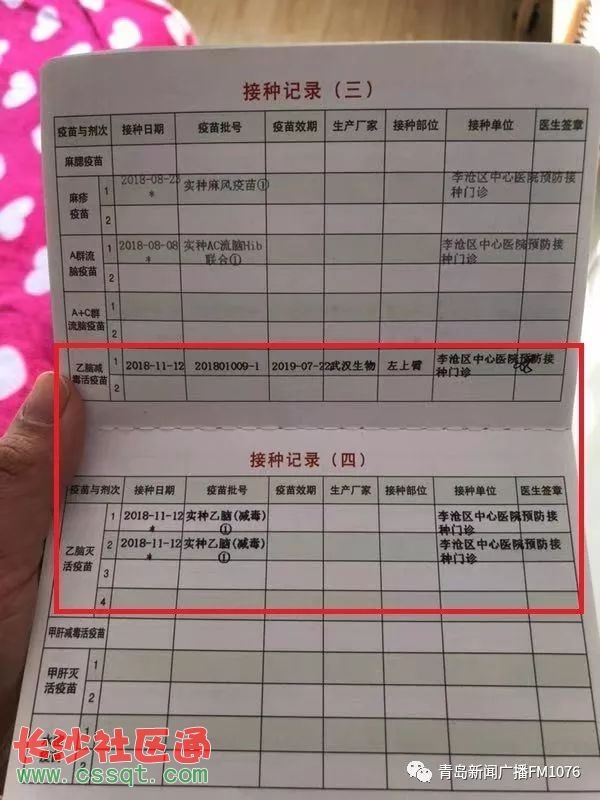 接种记录（三）
疫苗与剂次 接种日期 疫苗批号 疫苗效期 生产厂家 接种部位 接种单位 医生签章
麻腮疫苗
麻疹疫苗 1 2018-08-23* 实种麻风疫苗① 李沧区中心医院预防接种门诊
2
A群流脑疫苗 1 2018-08-08* 实种AC流脑Hib联合① 李沧区中心医院预防接种门诊
2
A+C群流脑疫苗 1
2
乙脑减毒活疫苗 1 2018-11-12 201801009-1 2019-07-22 武汉生物 左上臂 李沧区中心医院预防接种门诊
2
接种记录（四）
疫苗与剂次 接种日期 疫苗批号 疫苗效期 生产厂家 接种部位 接种单位 医生签章
乙脑灭活疫苗 1 2018-11-12* 实种乙脑(减毒)① 李沧区中心医院预防接种门诊
2 2018-11-12* 实种乙脑(减毒)① 李沧区中心医院预防接种门诊
3
4
甲肝减毒活疫苗
甲肝灭活疫苗 1
2
1
2
长沙社区通
www.cssqt.com
青岛新闻广播FM1076